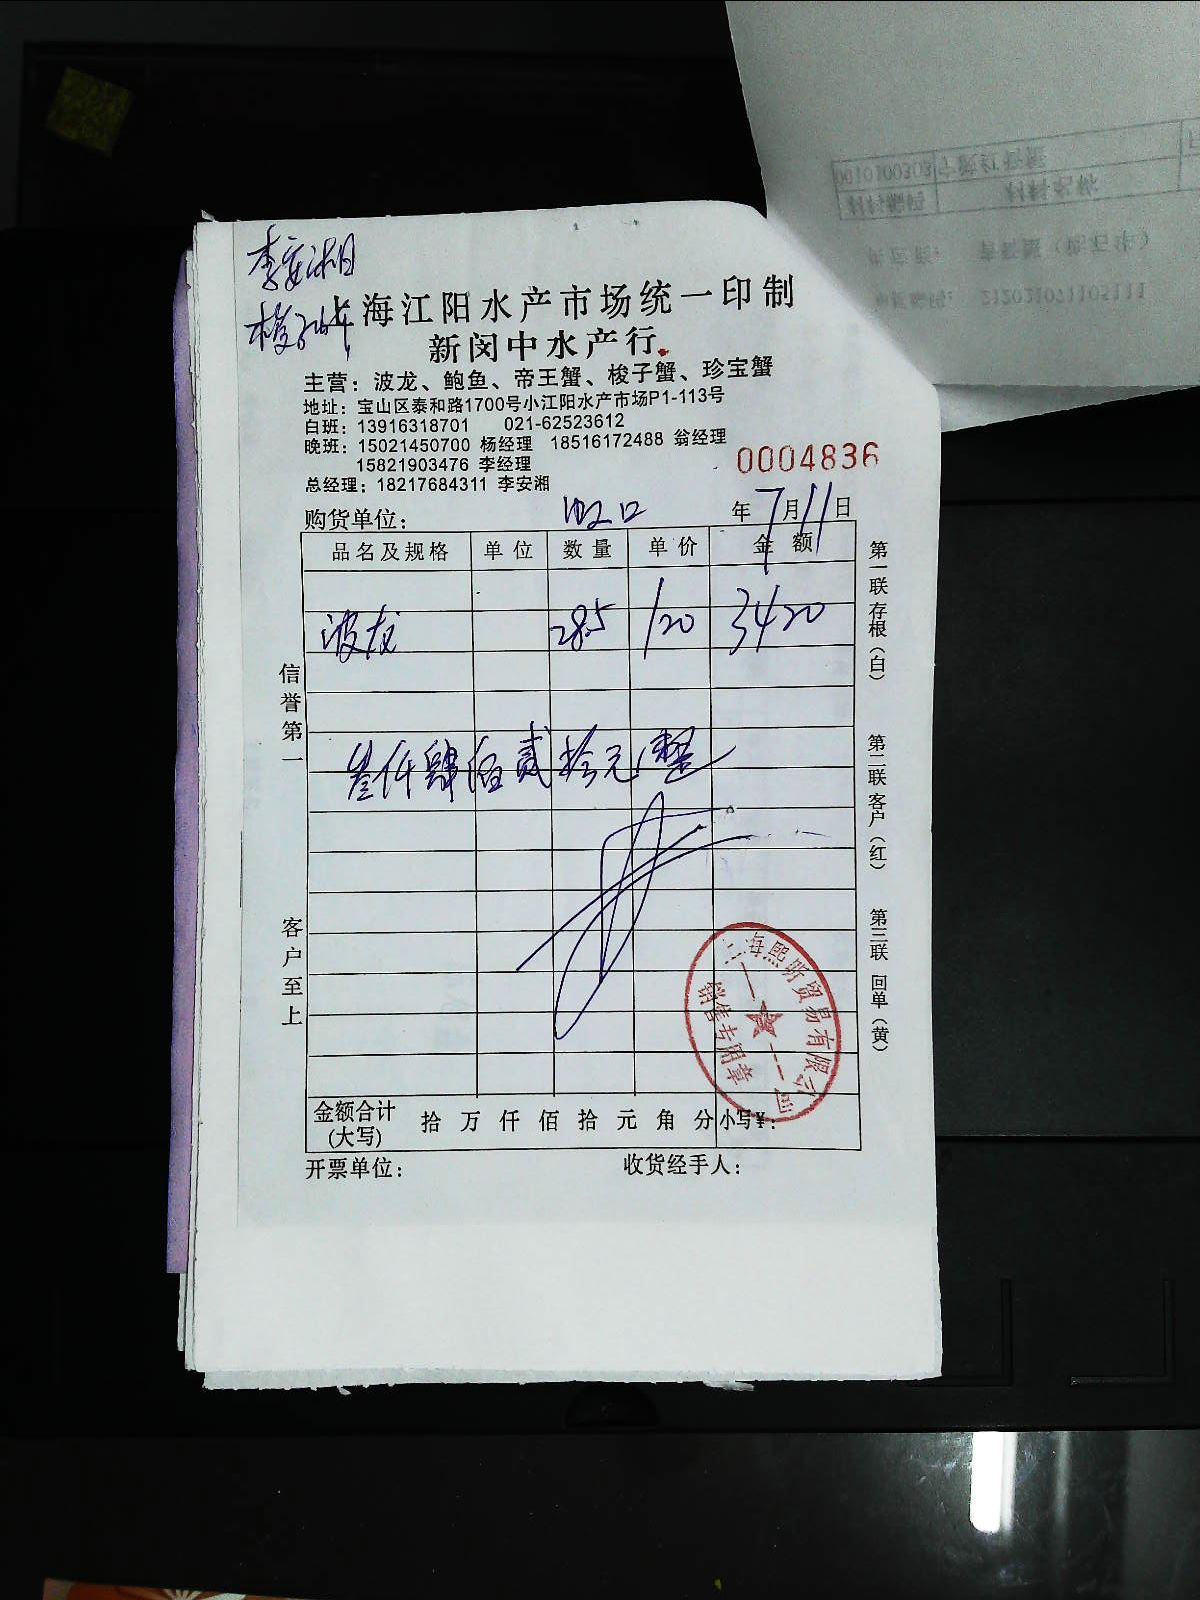 李安湘
梭子蟹
上海江阳水产市场统一印制
新闵中水产行
主营：波龙、鲍鱼、帝王蟹、梭子蟹、珍宝蟹
地址：宝山区泰和路1700号小江阳水产市场P1-113号
白班：13916318701 021-62523612
晚班：15021450700 杨经理 18516172488 翁经理
15821903476 李经理
总经理：18217684311 李安湘
0004836
购货单位： 虹口 年 7 月 11 日
品名及规格 单位 数量 单价 金额
波龙 28.5 120 3420
叁仟肆佰贰拾元整
信誉第一
客户至上
第一联 存根（白）
第二联 客户（红）
第三联 回单（黄）
上海熙昕贸易有限公司
销售专用章
金额合计 拾 万 仟 佰 拾 元 角 分 小写¥：
(大写)
开票单位： 收货经手人：